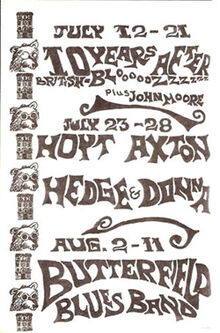 JULY 12-21
10 YEARS AFTER
BRITISH-BLOOOODZZZZZZ
Plus JOHN MOORE
JULY 23-28
HOYT AXTON
HEDGE & DONNA
AUG. 2-11
BUTTERFIELD
BLUES BAND